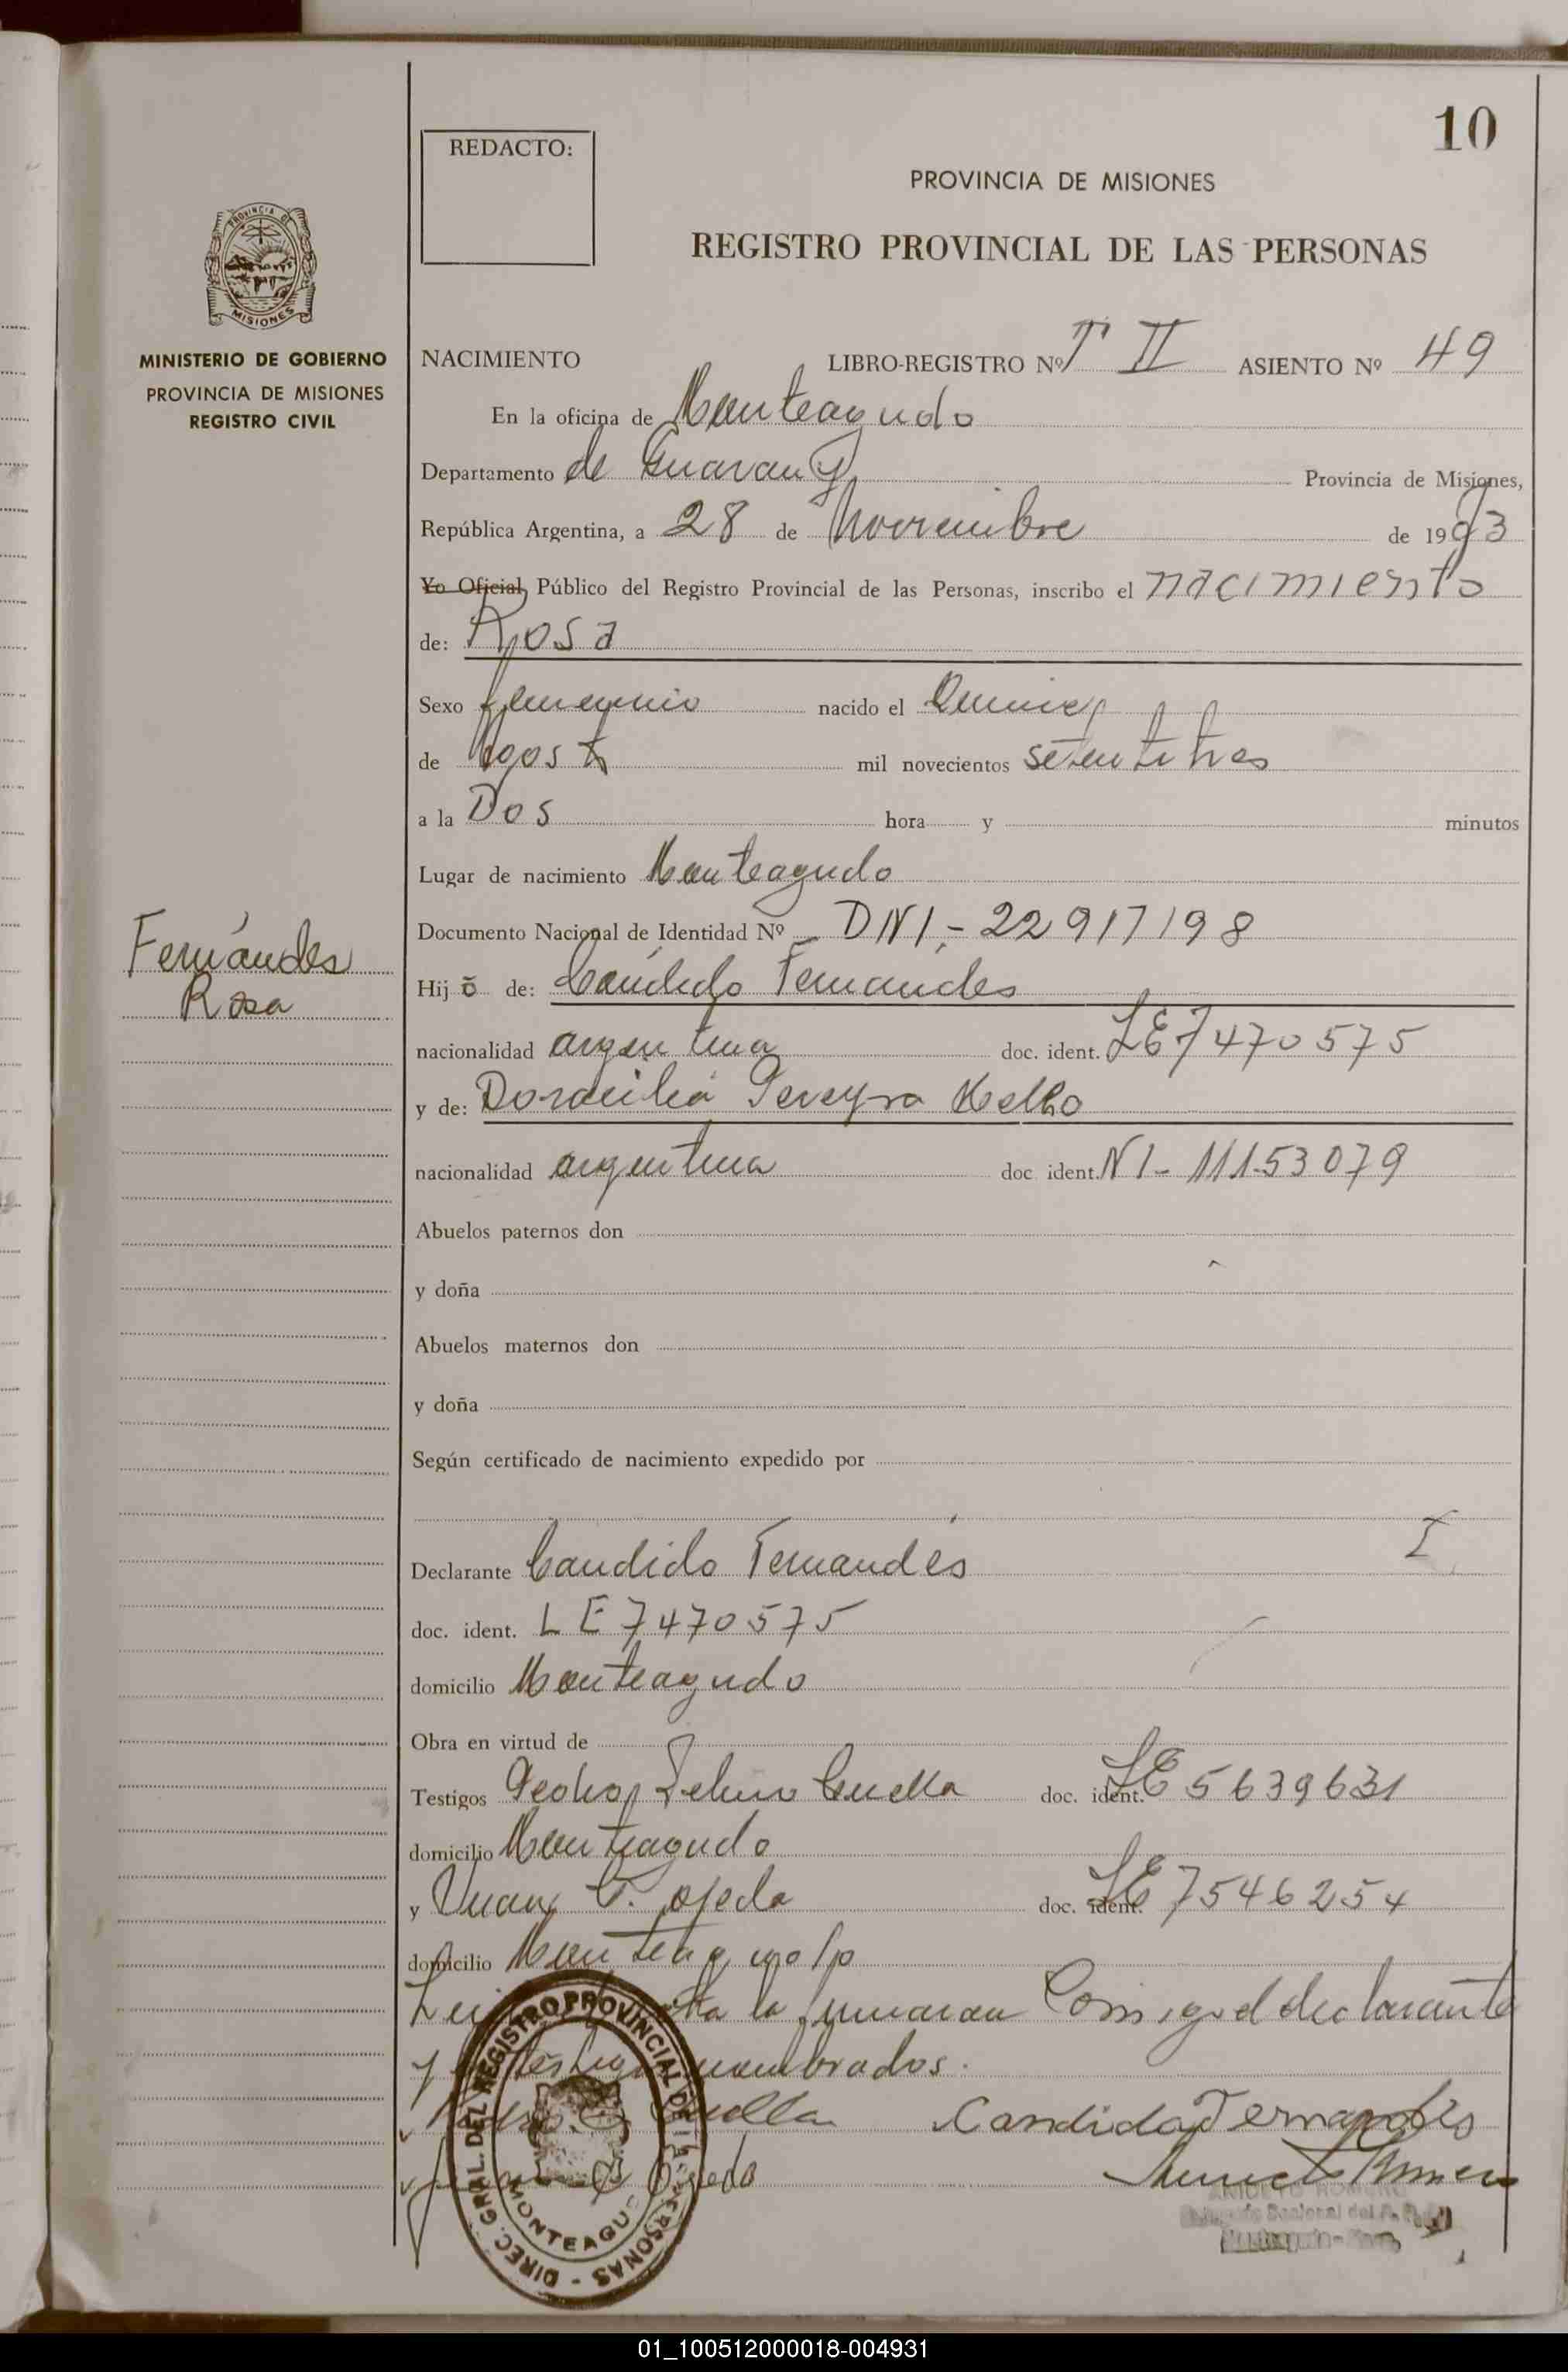 10
REDACTO:
PROVINCIA DE MISIONES
REGISTRO PROVINCIAL DE LAS PERSONAS
PROVINCIA DE
MISIONES
MINISTERIO DE GOBIERNO
PROVINCIA DE MISIONES
REGISTRO CIVIL
NACIMIENTO LIBRO-REGISTRO Nº T II ASIENTO Nº 49
En la oficina de Monteagudo
Departamento de Guarany Provincia de Misiones,
República Argentina, a 28 de Noviembre de 1973
Yo Oficial Público del Registro Provincial de las Personas, inscribo el nacimiento
de: Rosa
Sexo femenino nacido el Quince
de Agosto mil novecientos
a la Dos hora y minutos
Lugar de nacimiento Monteagudo
Documento Nacional de Identidad Nº DNI - 22917198
Fernández
Rosa
Hij o de: Candido Fernandes
nacionalidad argentina doc. ident. LE 7470575
y de: Pereyra Mello
nacionalidad argentina doc. ident. NI - 11153079
Abuelos paternos don
y doña
Abuelos maternos don
y doña
Según certificado de nacimiento expedido por
Declarante Candido Fernandes I
doc. ident. LE 7470575
domicilio Monteagudo
Obra en virtud de
Testigos Pedro Cuella doc. ident. LE 5639631
domicilio Monteagudo
y Juan T. Ojeda doc. ident. LE 7546254
domicilio Monteagudo
la firmaran el declarante
y testigos nombrados.
Cuella Candido Fernandes
Ojeda
DIREC. GRAL. DEL REGISTRO PROVINCIAL DE LAS PERSONAS -
MONTEAGUDO
ANICETO ROMERO
01_100512000018-004931